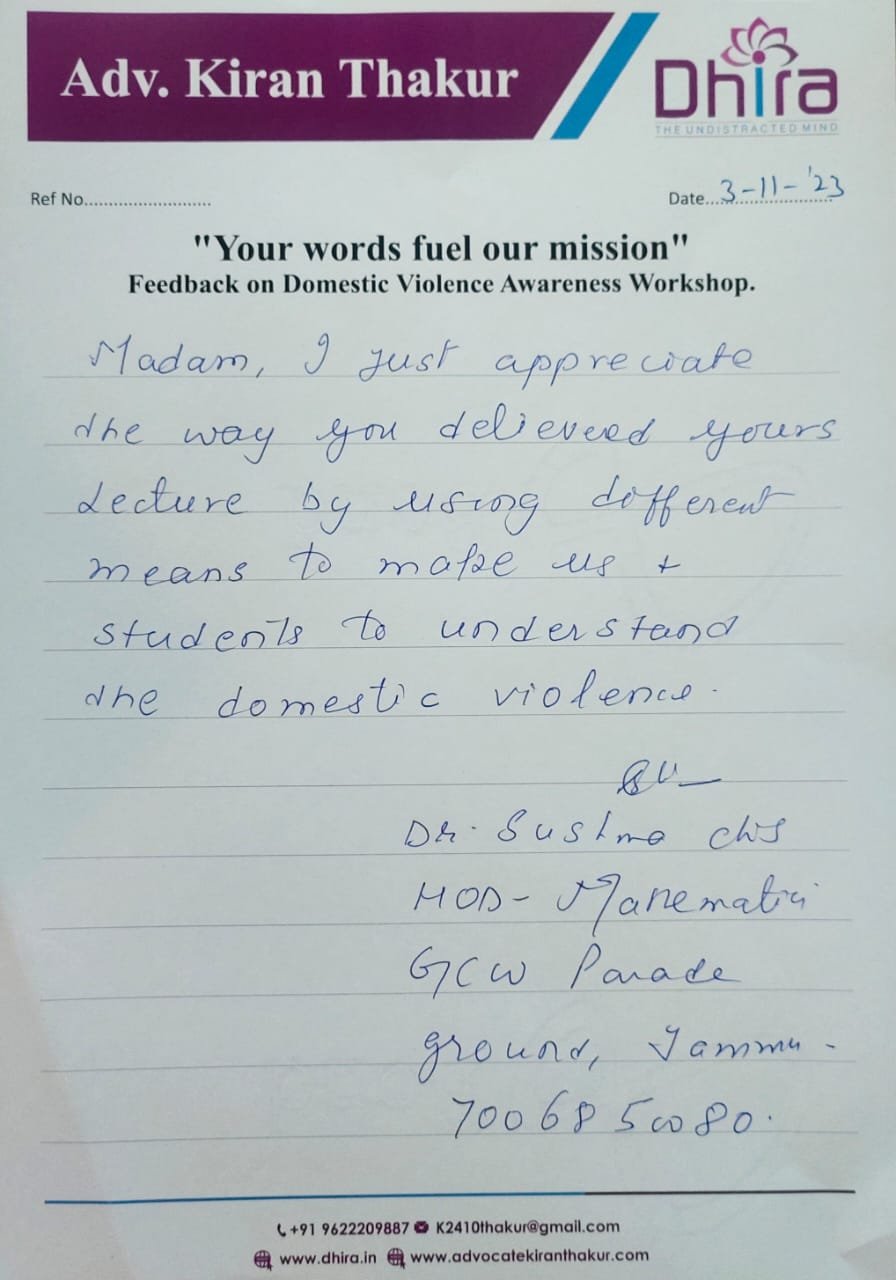 Adv. Kiran Thakur
Dhira
THE UNDISTRACTED MIND
Ref No.........................
Date...3-11-'23
"Your words fuel our mission"
Feedback on Domestic Violence Awareness Workshop.
Madam, I just appreciate
the way you delievered yours
Lecture by using different
means to make us +
students to understand
the domestic violence.
Dr. Sushma
HOD - Mathematics
GCW Parade
ground, Jammu -
7006850080.
+91 9622209887 K2410thakur@gmail.com
www.dhira.in www.advocatekiranthakur.com